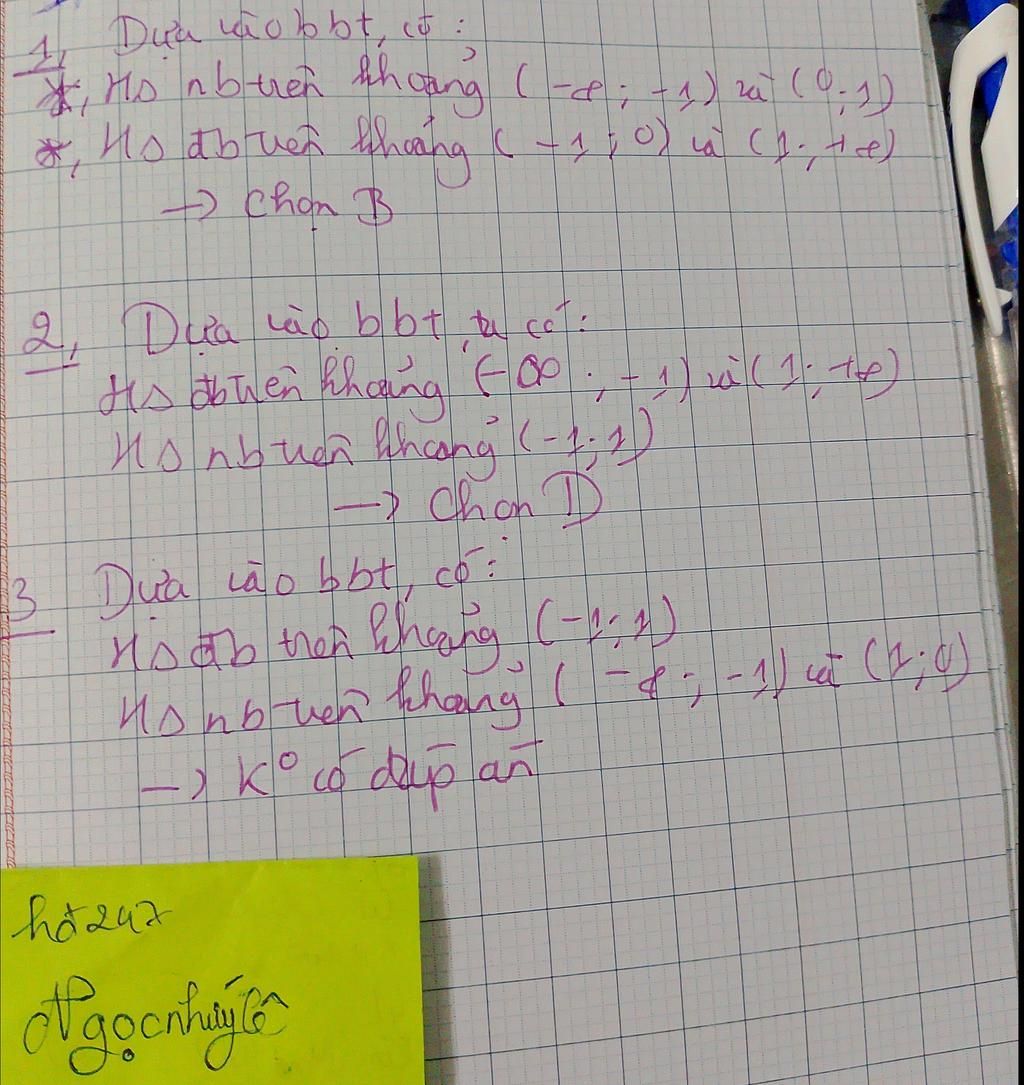 1, Dựa vào bbt, có:
*, HS nb trên khoảng (-∞; -1) và (0;1)
*, HS đb trên khoảng (-1;0) và (1; +∞)
→ Chọn B
2, Dựa vào bbt, ta có:
HS đb trên khoảng (-∞; -1) và (1; +∞)
HS nb trên khoảng (-1;1)
→ Chọn D
3 Dựa vào bbt, có:
HS đb trên khoảng (-1;1)
HS nb trên khoảng (-∞; -1) và (1;0)
→ K° có đáp án
hđ247
Ngọcnhưýlê